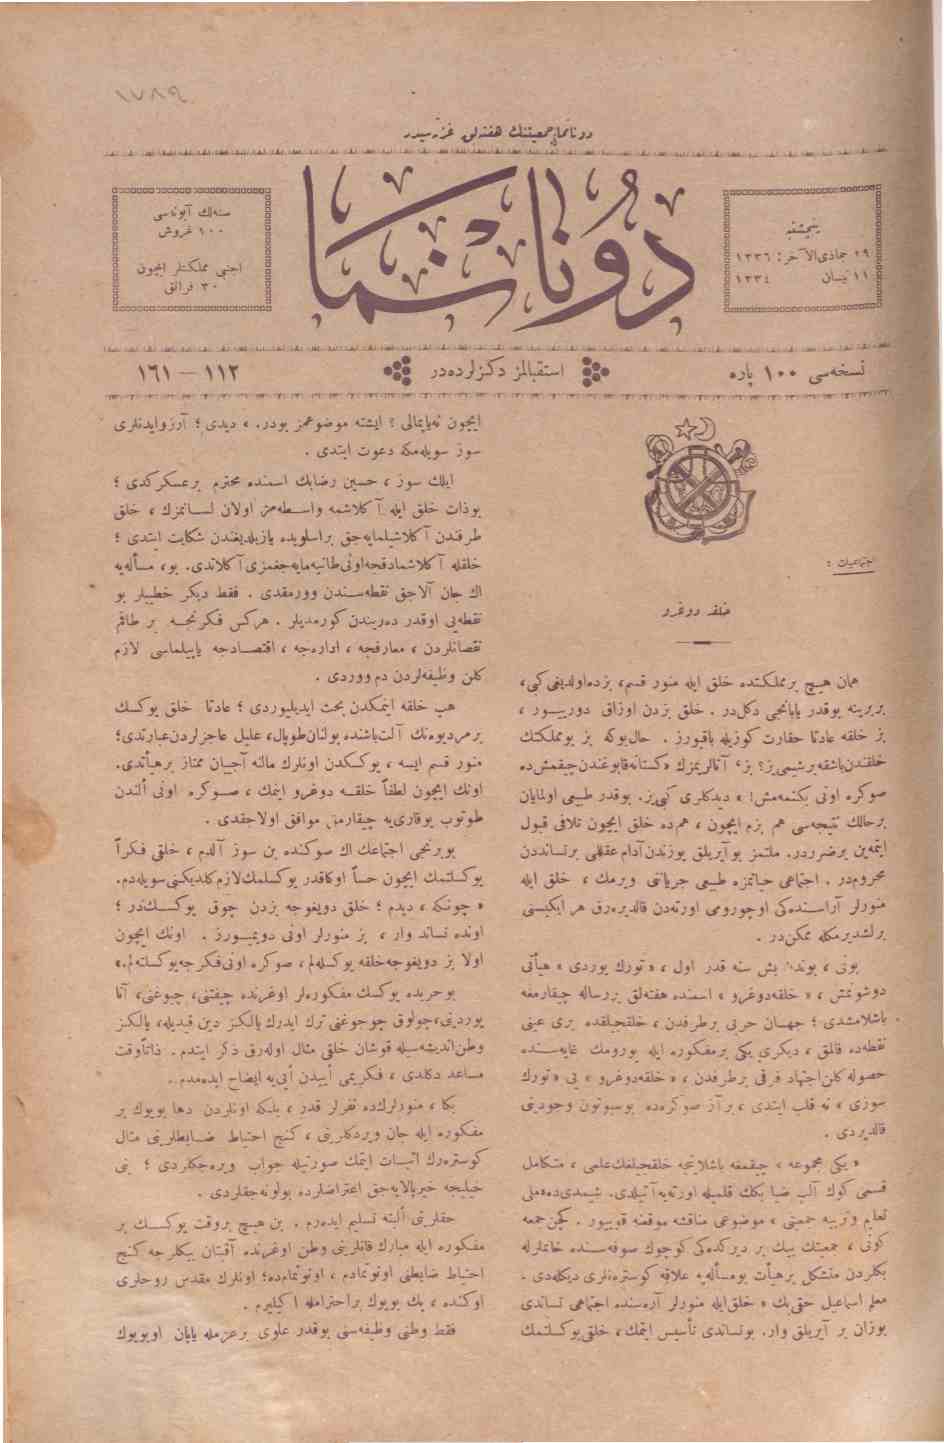 ١٧٨٩
دونانما جمعیتنك هفته‌لق غزته‌سیدر
پنجشنبه
٢٩ جمادی‌الآخر : ١٣٣٦
١١ نیسان ١٣٣٤
دونانما
سنه‌لك آبونه‌سی
١٠٠ غروش
اجنبی مملکتلر ایچون
٣٠ فرانق
نسخه‌سی ١٠٠ پاره
استقبالمز دکزلرده‌در
١١٢ — ١٦١
اجتماعیات :
خلقه دوغرو
همان هیچ بر مملکتده خلق ایله منور قسم، بزده‌اولدیغی کبی،
بربرینه بوقدر یابانجی دکل‌در . خلق بزدن اوزاق دوریـیور ،
بز خلقه عادتا حقارت کوزیله باقیورز . حال‌بوکه بز بومملکتك
خلقندن‌باشقه برشیمی‌یز؟ بز، آتالریمزك «کستانه‌قابوغندن‌چیقمش‌ده
صوکره اونی بکنمه‌مش! » دیدکلری کبی‌یز. بوقدر طبیعی اولمایان
برحالك نتیجه‌سی هم بزم ایچون ، هم‌ده خلق ایچون تلافی قبول
ایتمه‌ین برضرردر. ملتمز بوآیریلق یوزندن‌آدام عقللی برتساندن
محروم‌در . اجتماعی حیاتمزه طبیعی جریانی ویرمك ، خلق ایله
منورلر آراسـنده‌کی اوچورومی اورته‌دن قالدیره‌رق هر ایکیسنی
برلشدیرمکله ممکن‌در .
بونی ، بوندن بش سنه قدر اول ، «تورك یوردی » هیأتی
دوشونمش ، « خلقه‌دوغرو » اسمنده هفته‌لق بررساله چیقارمغه
باشلامشدی ؛ جهـان حربی برطرفدن ، خلقجیلقده بری عینی
نقطه‌ده قالمق ، دیکری یکی برمفکوره ایله یورومك غایه‌سـنده
حصوله کلن‌اجتهاد فرقی برطرفدن ، « خلقه‌دوغرو » یی «تورك
سوزی » نه قلب ایتدی ، برآز صوکره‌ده بوسبوتون وجودینی
قالدیردی .
« یکی مجموعه » چیقمغه باشلاینجه خلقجیلغك‌علمی ، متکامل
قسمی کوك آلپ ضیا بکك قلمیله اورته‌یه‌آتیلدی. شیمدی‌ده‌«ملی
تعلیم وتربیه جمعیتی » موضوعی مناقشه موقعنه قویـیور . کچن‌جمعه
کونی ، جمعیتك بیك بر دیرکده‌کی کوچوك صوفه‌سـنده خانملرله
بکلردن متشکل برهیأت بومسأله‌یه علاقه کوستره‌نلری دیکله‌دی .
معلم اسماعیل حقی‌بك « خلق‌ایله منورلر آره‌سنده اجتماعی تساندی
بوزان بر آیریلق وار. بوتساندی تأسیس ایتمك ، خلقی‌یوکسلتمك
ایچون نه‌یاپمالی ؟ ایشته موضوعمز بودر. » دیدی ؛ آرزوایدنلری
سوز سویله‌مکه دعوت ایتدی .
ایلك سوز ، حسین رضابك اسمنده محترم برعسکرکدی ؛
بوذات خلق ایله آکلاشمه واسـطه‌مز اولان لسـانمزك ، خلق
طرفندن آکلاشیلمایه‌جق براسلوبده یازیلدیغندن شکایت ایتدی ؛
خلقله آکلاشمادقجه‌اونی‌طانیه‌مایه‌جغمزی آکلاتدی. بو، مسأله‌یه
اك جان آلاجق نقطه‌سـندن وورمقدی . فقط دیکر خطیبلر بو
نقطه‌یی اوقدر ده‌ریندن کورمدیلر . هرکس فکرنجـه بر طاقم
نقصانلردن ، معارفجه ، اداره‌جه ، اقتصـادجه یاپیلماسی لازم
کلن وظیفه‌لردن دم ووردی .
هپ خلقه ایتمکدن بحث ایدیلیوردی ؛ عادتا خلق یوکسـك
برمردیوه‌نك آلت‌باشنده بولنان‌طوپال، علیل عاجزلردن‌عبارتدی؛
منور قسم ایسه ، یوکسکدن اونلرك حالنه آجیـان ممتاز برهیأتدی.
اونك ایچون لطفاً خلقـه دوغرو ایتمك ، صـوکره اونی ألندن
طوتوب یوقاری‌یه چیقارمق موافق اولاجقدی .
بوبرنجی اجتماعك اك صوکنده بن سوز آلدم ، خلقی فکراً
یوکسلتمك ایچون حسـاً اوکاقدر یوکسلمك‌لازم‌کلدیکنی‌سویله‌دم.
« چونکه ، دیدم ؛ خلق دویغوجه بزدن چوق یوکسـکدر ؛
اونده تساند وار ، بز منورلر اونی دویمـیورز . اونك ایچون
اولا بز دویغوجه‌خلقه یوکسله‌لم ، صوکره اونی‌فکرجه‌یوکسلته‌لم.»
بوحربده یوکسك مفکوره‌لر اوغرنده چیفتنی، چبوغنی، آنا
یوردینی، چولوق چوجوغنی ترك ایدرك یالکز دین قیدیله، یالکز
وطن‌اندیشه‌سیله قوشان خلقی مثال اوله‌رق ذکر ایتدم . ذاتاًوقت
مساعد دکلدی ، فکریمی أییدن أیی‌یه ایضاح ایده‌مدم .
بکا ، منورلرك‌ده نفرلر قدر ، بلکه اونلردن دها بویوك بر
مفکوره ایله جان ویردکلرینی ، کنج احتیاط ضـابطلرینی مثال
کوستره‌رك اثبـات ایتمك صورتیله جواب ویره‌جکلردی ؛ بنی
خیلیجه خیرپالایه‌جق اعتراضلرده بولونه‌جقلردی .
حقلرینی ألبته تسلیم ایده‌رم . بن هیـچ بروقت یوکسـك بر
مفکوره ایله مبارك قانلرینی وطن اوغرنده آقیتان بیکلرجه کنج
احتیاط ضابطنی اونوتمادم ، اونوتمام‌ده؛ اونلرك مقدس روحلری
اوکنده ، پك بویوك براحترامله ا کیلیرم .
فقط وطنی وظیفه‌سنی بوقدر علوی برعزمله یاپان اوبویوك